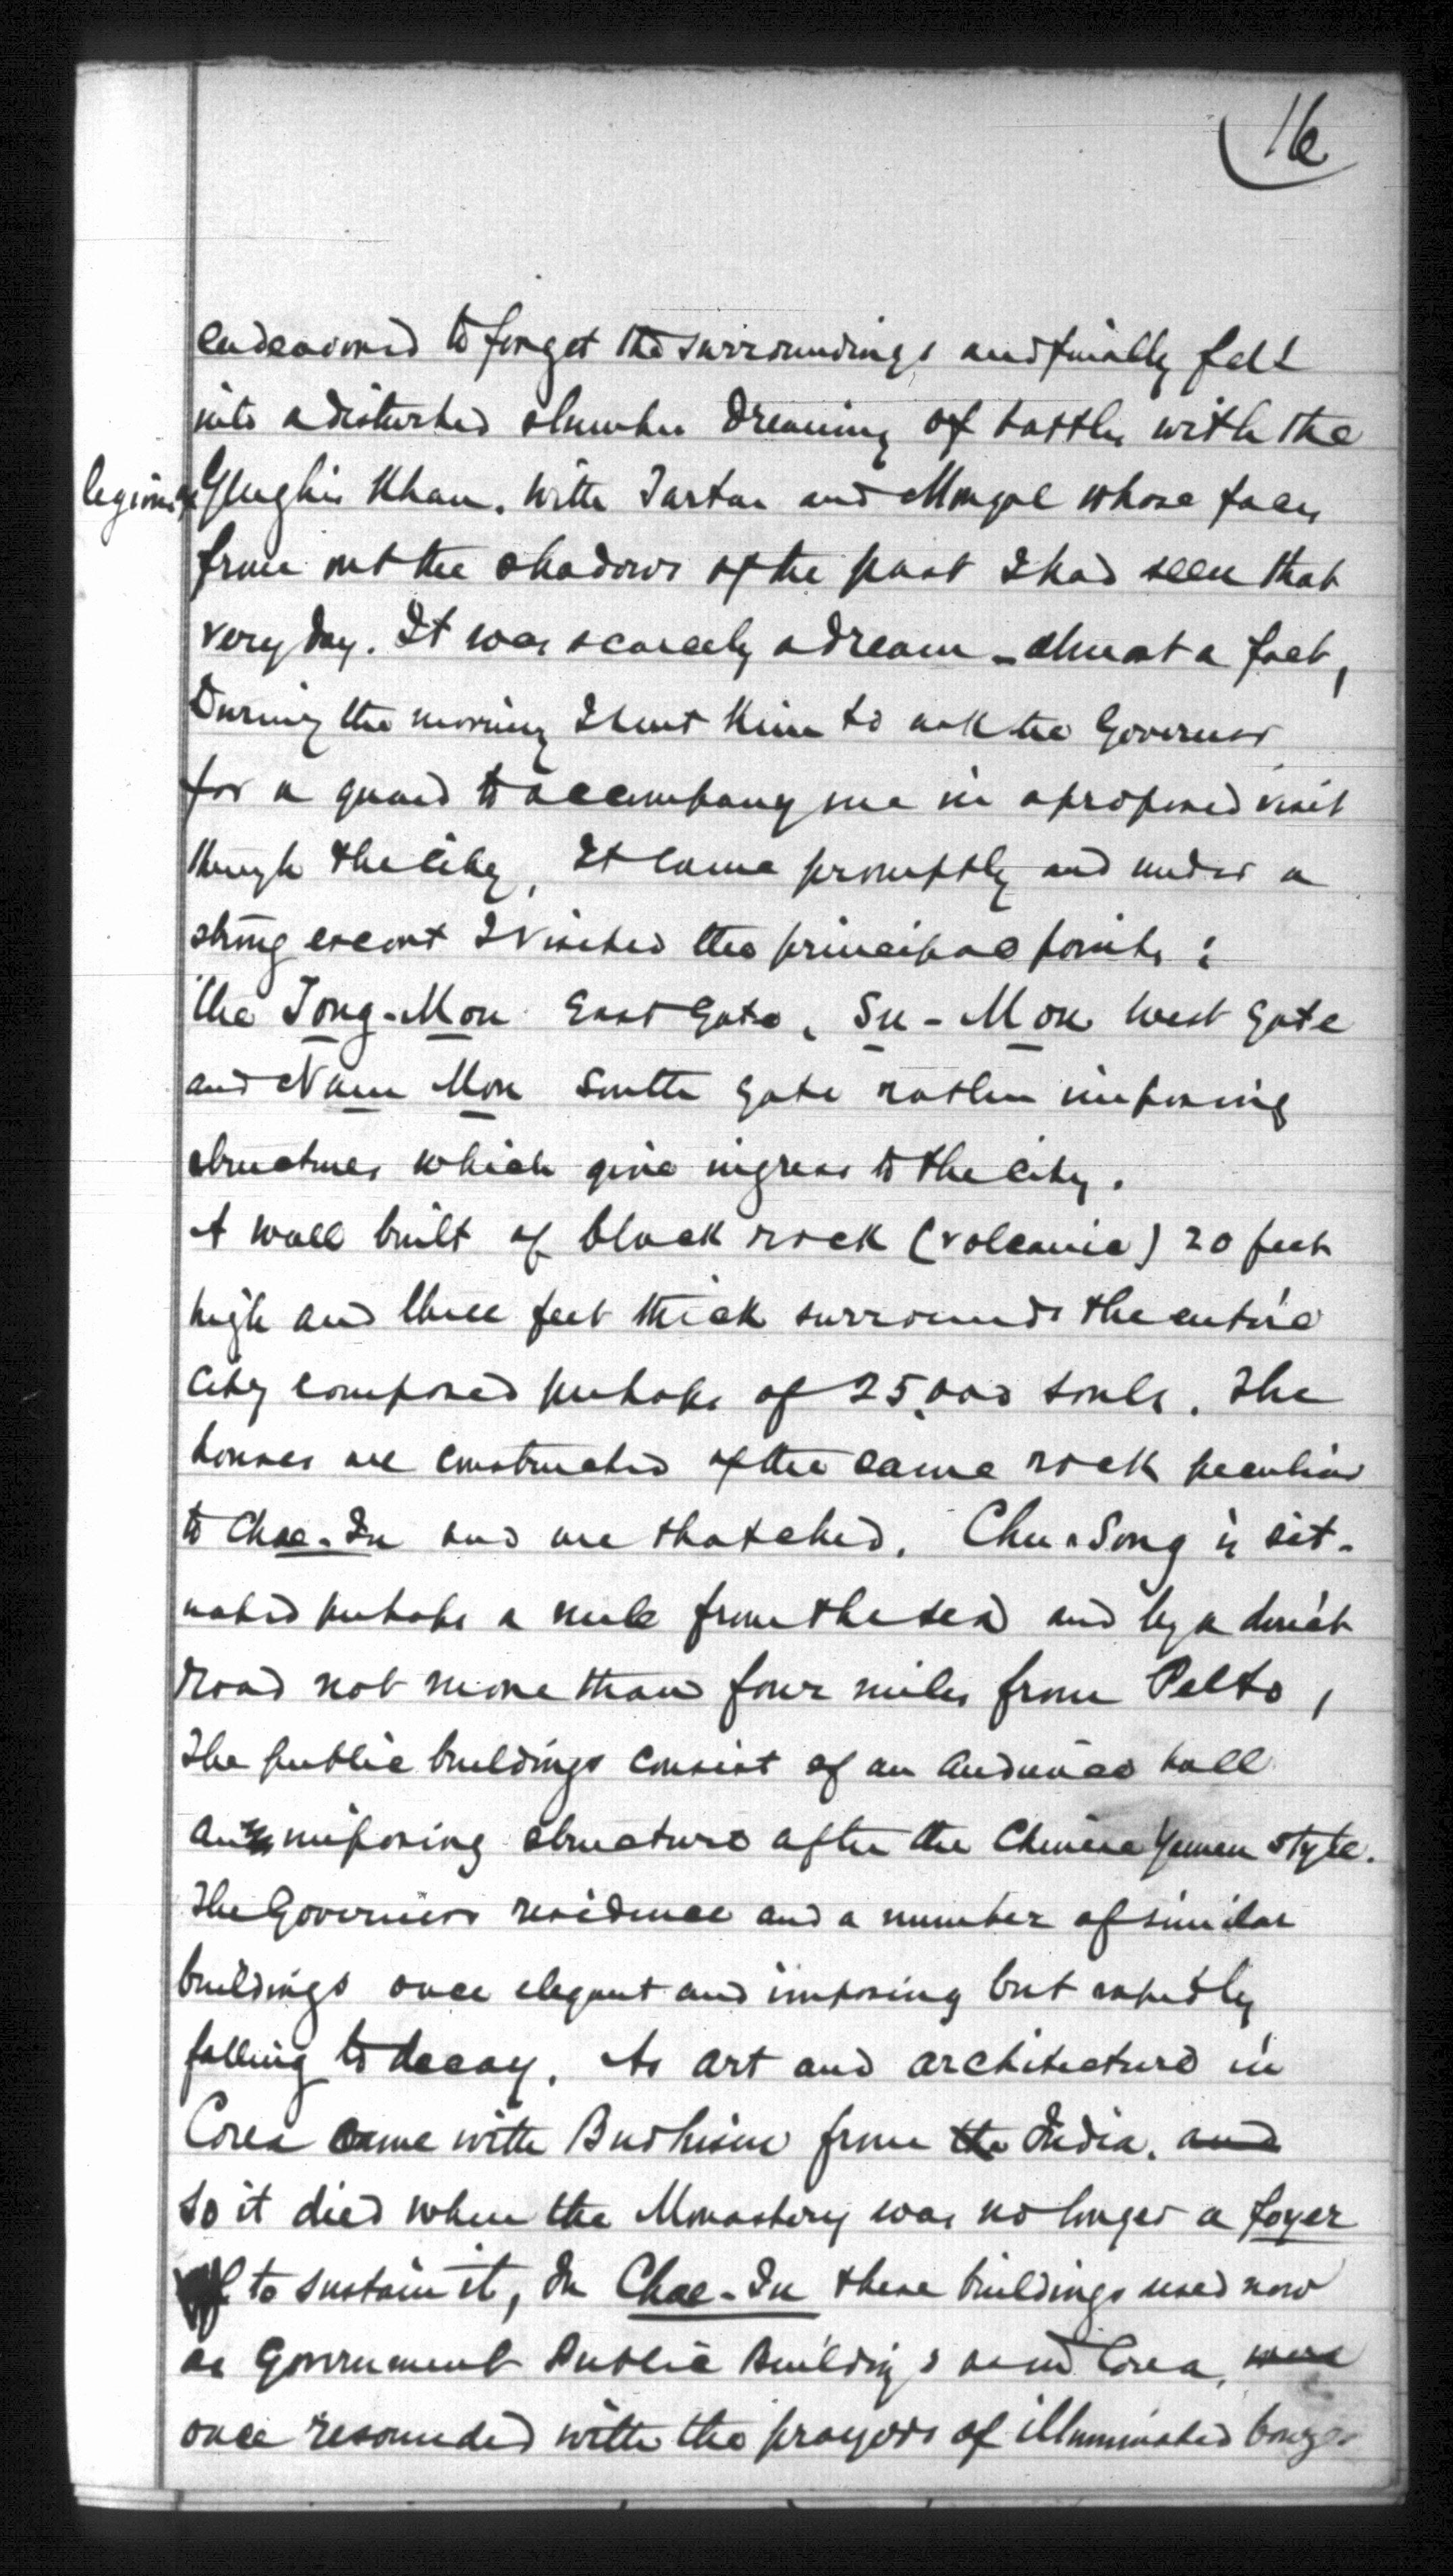 16
endeavored to forget the surroundings and finally fell
into a disturbed slumber dreaming of battles with the
legions of Genghis Khan. With Tartar and Mongol whose faces
from out the shadows of the past I had seen that
very day. It was scarcely a dream - almost a fact,
During the morning I sent Kim to ask the Governor
for a guard to accompany me in a proposed visit
through the City. It came promptly and under a
strong escort I visited the principal points:
The Tong-Mon East Gate, Su-Mon West Gate
and Nam Mon South Gate rather imposing
structures which give ingress to the City.
A wall built of black rock (volcanic) 20 feet
high and three feet thick surrounds the entire
City composed perhaps of 25,000 souls. The
houses are constructed of the same rock peculiar
to Chae-Ju and are thatched. Chu-Song is sit-
uated perhaps a mile from the sea and by a direct
road not more than four miles from Pelto,
The public buildings consist of an audience hall
an imposing structure after the Chinese Yamen style.
The Governors residence and a number of similar
buildings once elegant and imposing but rapidly
falling to decay. As art and architecture in
Corea came with Budhism from the India. and
so it died when the Monastery was no longer a foyer
to sustain it, In Chae-Ju these buildings used now
as Government Public Buildings as in Corea, were
once resounded with the prayers of illuminated bonzes